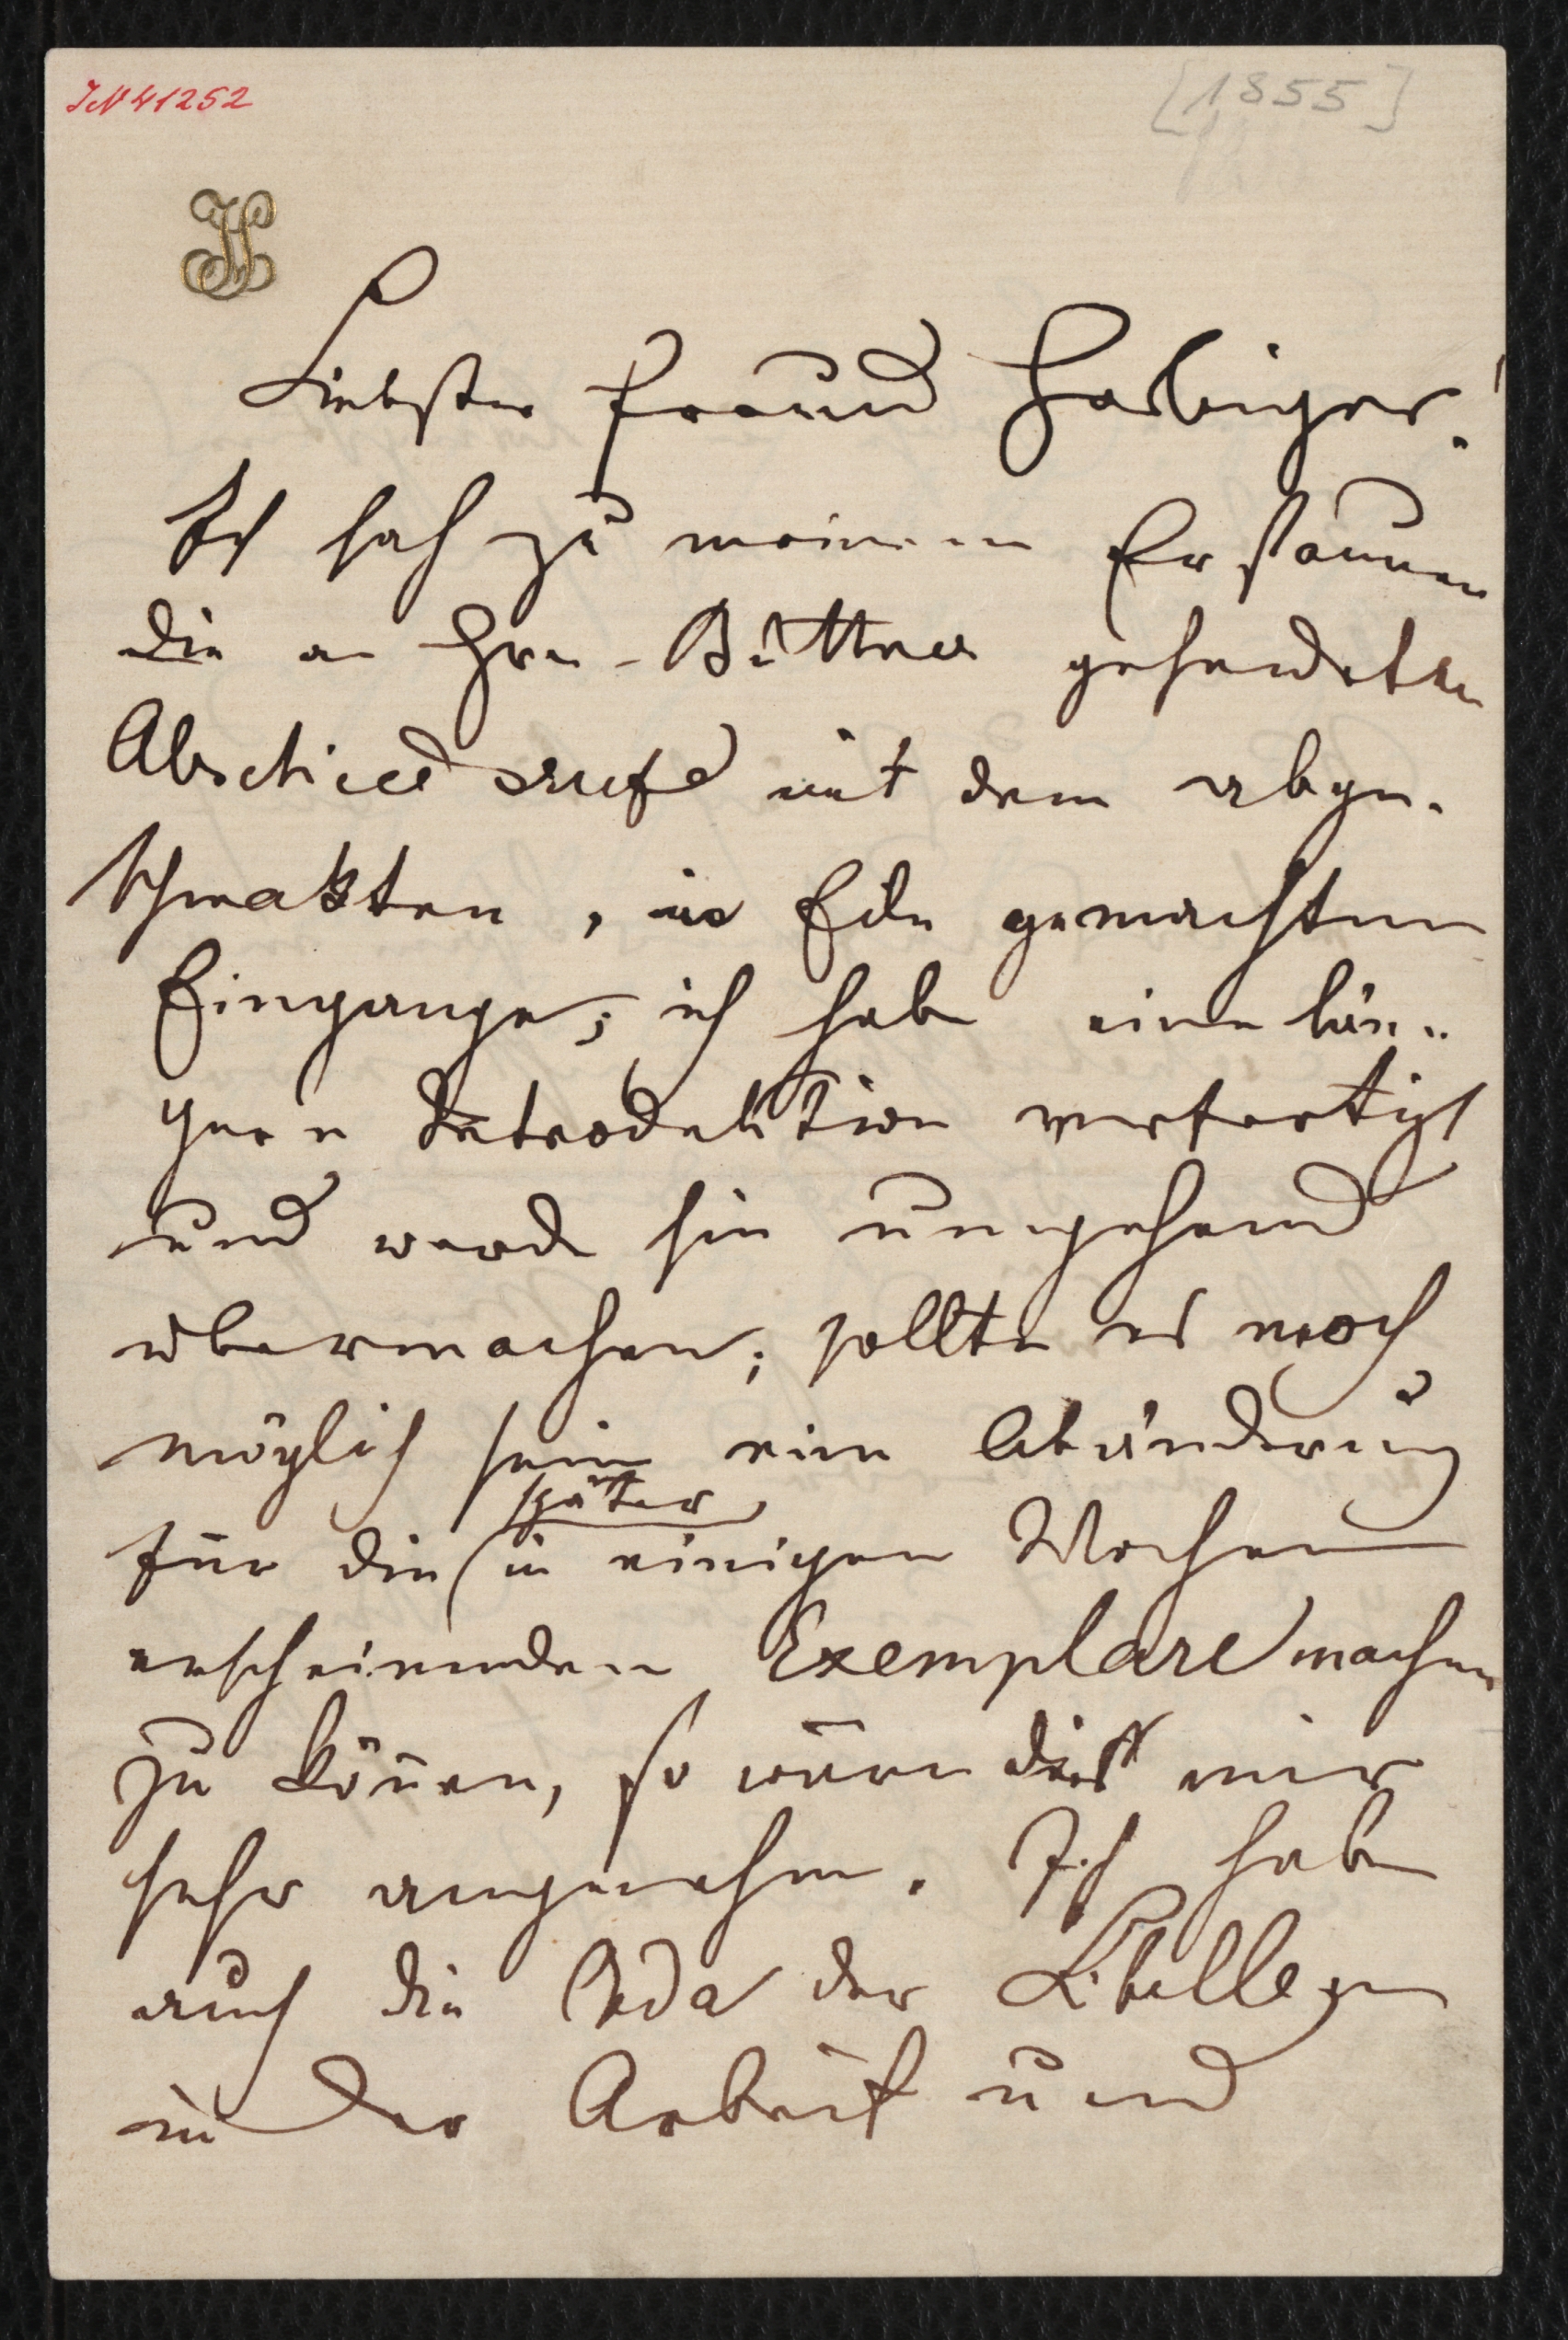 IN 41252
[1855]
JS
Liebster Freund Haslinger!
Ich sah zu meinem Erstaunen
die an Hrn. Büttner gesendeten
Abschiedsrufe mit dem abge-
schmakten, in Eile gemachten
Eingange; ich habe eine län-
gere Introduktion verfertigt
und werde sie umgehend
übermachen; sollte es noch
möglich sein eine Abänderung
für die (in einigen Wochen
später)
erscheinenden Exemplare machen
zu können, so wäre dieß mir
sehr angenehm. Ich habe
auch die Coda der Libellen
in der Arbeit und